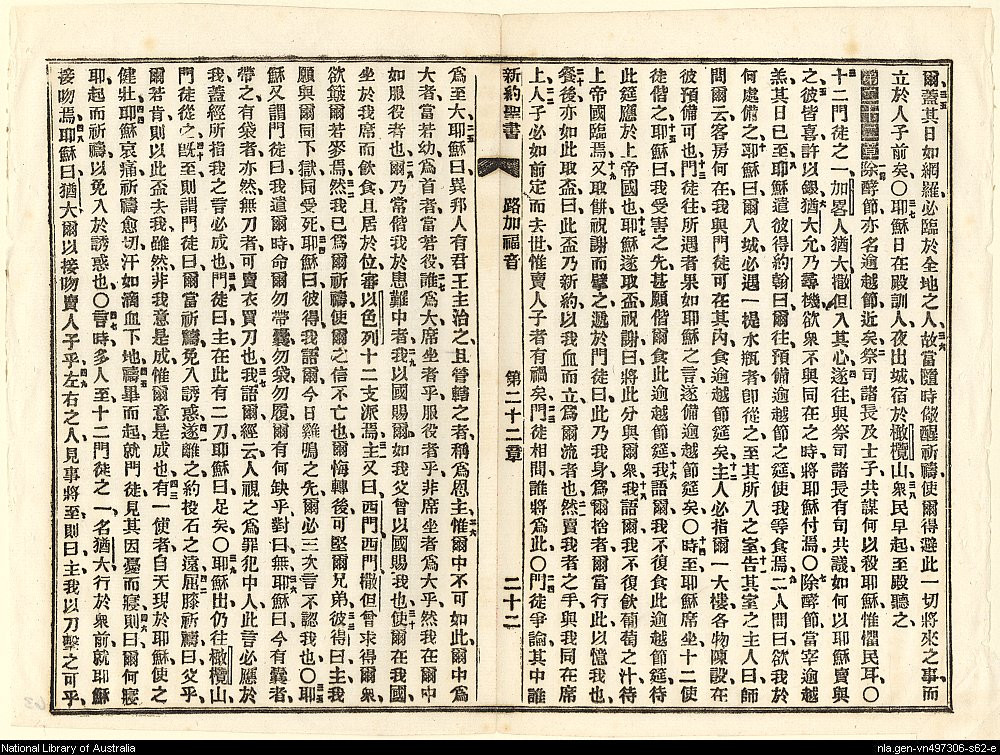 爾蓋其日如網羅必臨於全地之人故當隨時儆醒祈禱使爾得避此一切將來之事而
立於人子前矣〇耶穌日在殿訓人夜出城宿於橄欖山衆民早起至殿聽之
第二十二章除酵節亦名逾越節近矣祭司諸長及士子共謀何以殺耶穌惟懼民耳〇
十二門徒之一加畧人猶大撒但入其心遂往與祭司諸長有司共議如何以耶穌賣與
之彼皆喜許以銀猶大允乃尋機欲衆不與同在之時將耶穌付焉〇除酵節當宰逾越
羔其日已至耶穌遣彼得約翰曰爾往預備逾越節之筵使我等食焉二人問曰欲我於
何處備之耶穌曰爾入城必遇一提水瓶者卽從之至其所入之室吿其室之主人曰師
問爾云客房何在我與門徒可在其內食逾越節筵矣主人必指爾一大樓各物陳設在
彼預備可也門徒往所遇者果如耶穌之言遂備逾越節筵矣〇時至耶穌席坐十二使
徒偕之耶穌曰我受害之先甚願偕爾食此逾越節筵我語爾我不復食此逾越節筵待
此筵應於上帝國也耶穌遂取盃祝謝曰將此分與爾衆我語爾我不復飲葡萄之汁待
上帝國臨焉又取餅祝謝而擘之遞於門徒曰此乃我身爲爾捨者爾當行此以憶我也
餐後亦如此取盃曰此盃乃新約以我血而立爲爾流者也然賣我者之手與我同在席
上人子必如前定而去世惟賣人子者有禍矣門徒相問誰將爲此〇門徒爭論其中誰
新約聖書 路加福音 第二十二章 二十二
爲至大耶穌曰異邦人有君王主治之且管轄之者稱爲恩主惟爾中不可如此爾中爲
大者當若幼爲首者當若役誰爲大席坐者乎服役者乎非席坐者爲大乎然我在爾中
如服役者也爾乃常偕我於患難中者我以國賜爾如我父曾以國賜我也使爾在我國
坐於我席而飲食且居於位審以色列十二支派焉主又曰西門西門撒但曾求得爾衆
欲簸爾若麥焉然我已爲爾祈禱使爾之信不亡也爾悔轉後可堅爾兄弟彼得曰主我
願與爾同下獄同受死耶穌曰彼得我語爾今日雞鳴之先爾必三次言不認我也〇耶
穌又謂門徒曰我遣爾時命爾勿帶囊勿袋勿履爾有何缺乎對曰無耶穌曰今有囊者
帶之有袋者亦然無刀者可賣衣買刀也我語爾經云人視之爲罪犯中人此言必應於
我蓋經所指我之言必成也門徒曰主在此有二刀耶穌曰足矣〇耶穌出仍往橄欖山
門徒從之旣至則謂門徒曰爾當祈禱免入誘惑遂離之約投石之遠屈膝祈禱曰父乎
爾若肯則以此盃去我雖然非我意是成惟爾意是成也有一使者自天現於耶穌使之
健壯耶穌哀痛祈禱愈切汗如滴血下地禱畢而起就門徒見其因憂而寢則曰爾何寢
耶起而祈禱以免入於誘惑也〇言時多人至十二門徒之一名猶大行於衆前就耶穌
接吻焉耶穌曰猶大爾以接吻賣人子乎左右之人見事將至則曰主我以刀擊之可乎
National Library of Australia
nla.gen-vn497306-s62-e